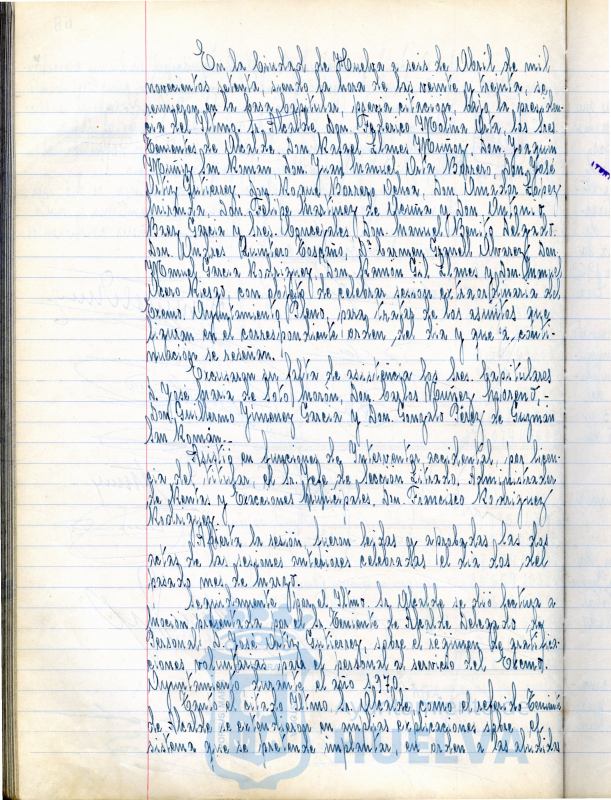 En la Ciudad de Huelva a seis de Abril de mil
novecientos setenta, siendo la hora de las veinte y treinta, se
reunieron en la Casa Capitular, previa citacion, bajo la presiden-
cia del Iltmo. Sr. Alcalde, Don Federico Molina Orta, los Sres.
Tenientes de Alcalde, Don Rafael Llanes Muñoz, Don Joaquin
Muñiz San Román, Don Juan Manuel Orta Borrero, Don José
Ortiz Gutierrez, Don Roque Barrero Ochoa, Don Amador Lopez
Miranda, Don Felipe Martinez de Acuña y Don Antonio
Baez Garcia y Sres. Concejales Don Manuel Benito Delgado
Don Onofre Quintero Toscano, Dª Carmen Gonell Alvarez, Don
Manuel Garcia Rodriguez, Don Ramon Gil Llanes y Don Manuel
Otero Riesgo, con objeto de celebrar sesion extraordinaria el
Excmo. Ayuntamiento Pleno, para tratar de los asuntos que
figuran en el correspondiente orden del dia y que a conti-
nuacion se reseñan.
Excusaron su falta de asistencia los Sres. Capitulares
D. José Maria de Soto Morón, Don Carlos Muñoz Moreno,
Don Guillermo Gimenez Garcia y Don Gonzalo Pérez de Guzmán
San Román.
Asistió en funciones de Interventor accidental, por licen-
cia del titular, el Sr. Jefe de Seccion Letrado, Administrador
de Rentas y Exacciones Municipales, Don Francisco Rodriguez
Rodriguez.
Abierta la sesión, fueron leidas y aprobadas las dos
actas de las sesiones anteriores celebradas el dia dos del
pasado mes de marzo.
Seguidamente por el Iltmo. Sr. Alcalde se dió lectura a
moción presentada por el Sr. Teniente de Alcalde Delegado de
Personal D. José Ortiz Gutierrez, sobre el regimen de gratifica-
ciones voluntarias para el personal al servicio del Excmo.
Ayuntamiento durante el año 1970.
Tanto el citado Iltmo. Sr. Alcalde como el referido Teniente
de Alcalde se extendieron en amplias explicaciones sobre el
sistema que se pretende implantar en orden a las
HUELVA